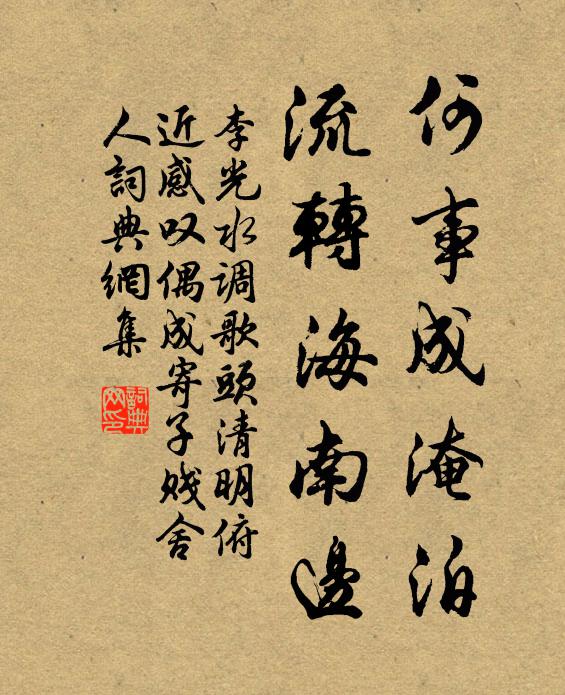 何事成淹泊
流轉海南邊
李光水调歌頭清明俯
近感叹偶成寄子贱舍
人詞典網集
詞典
网印